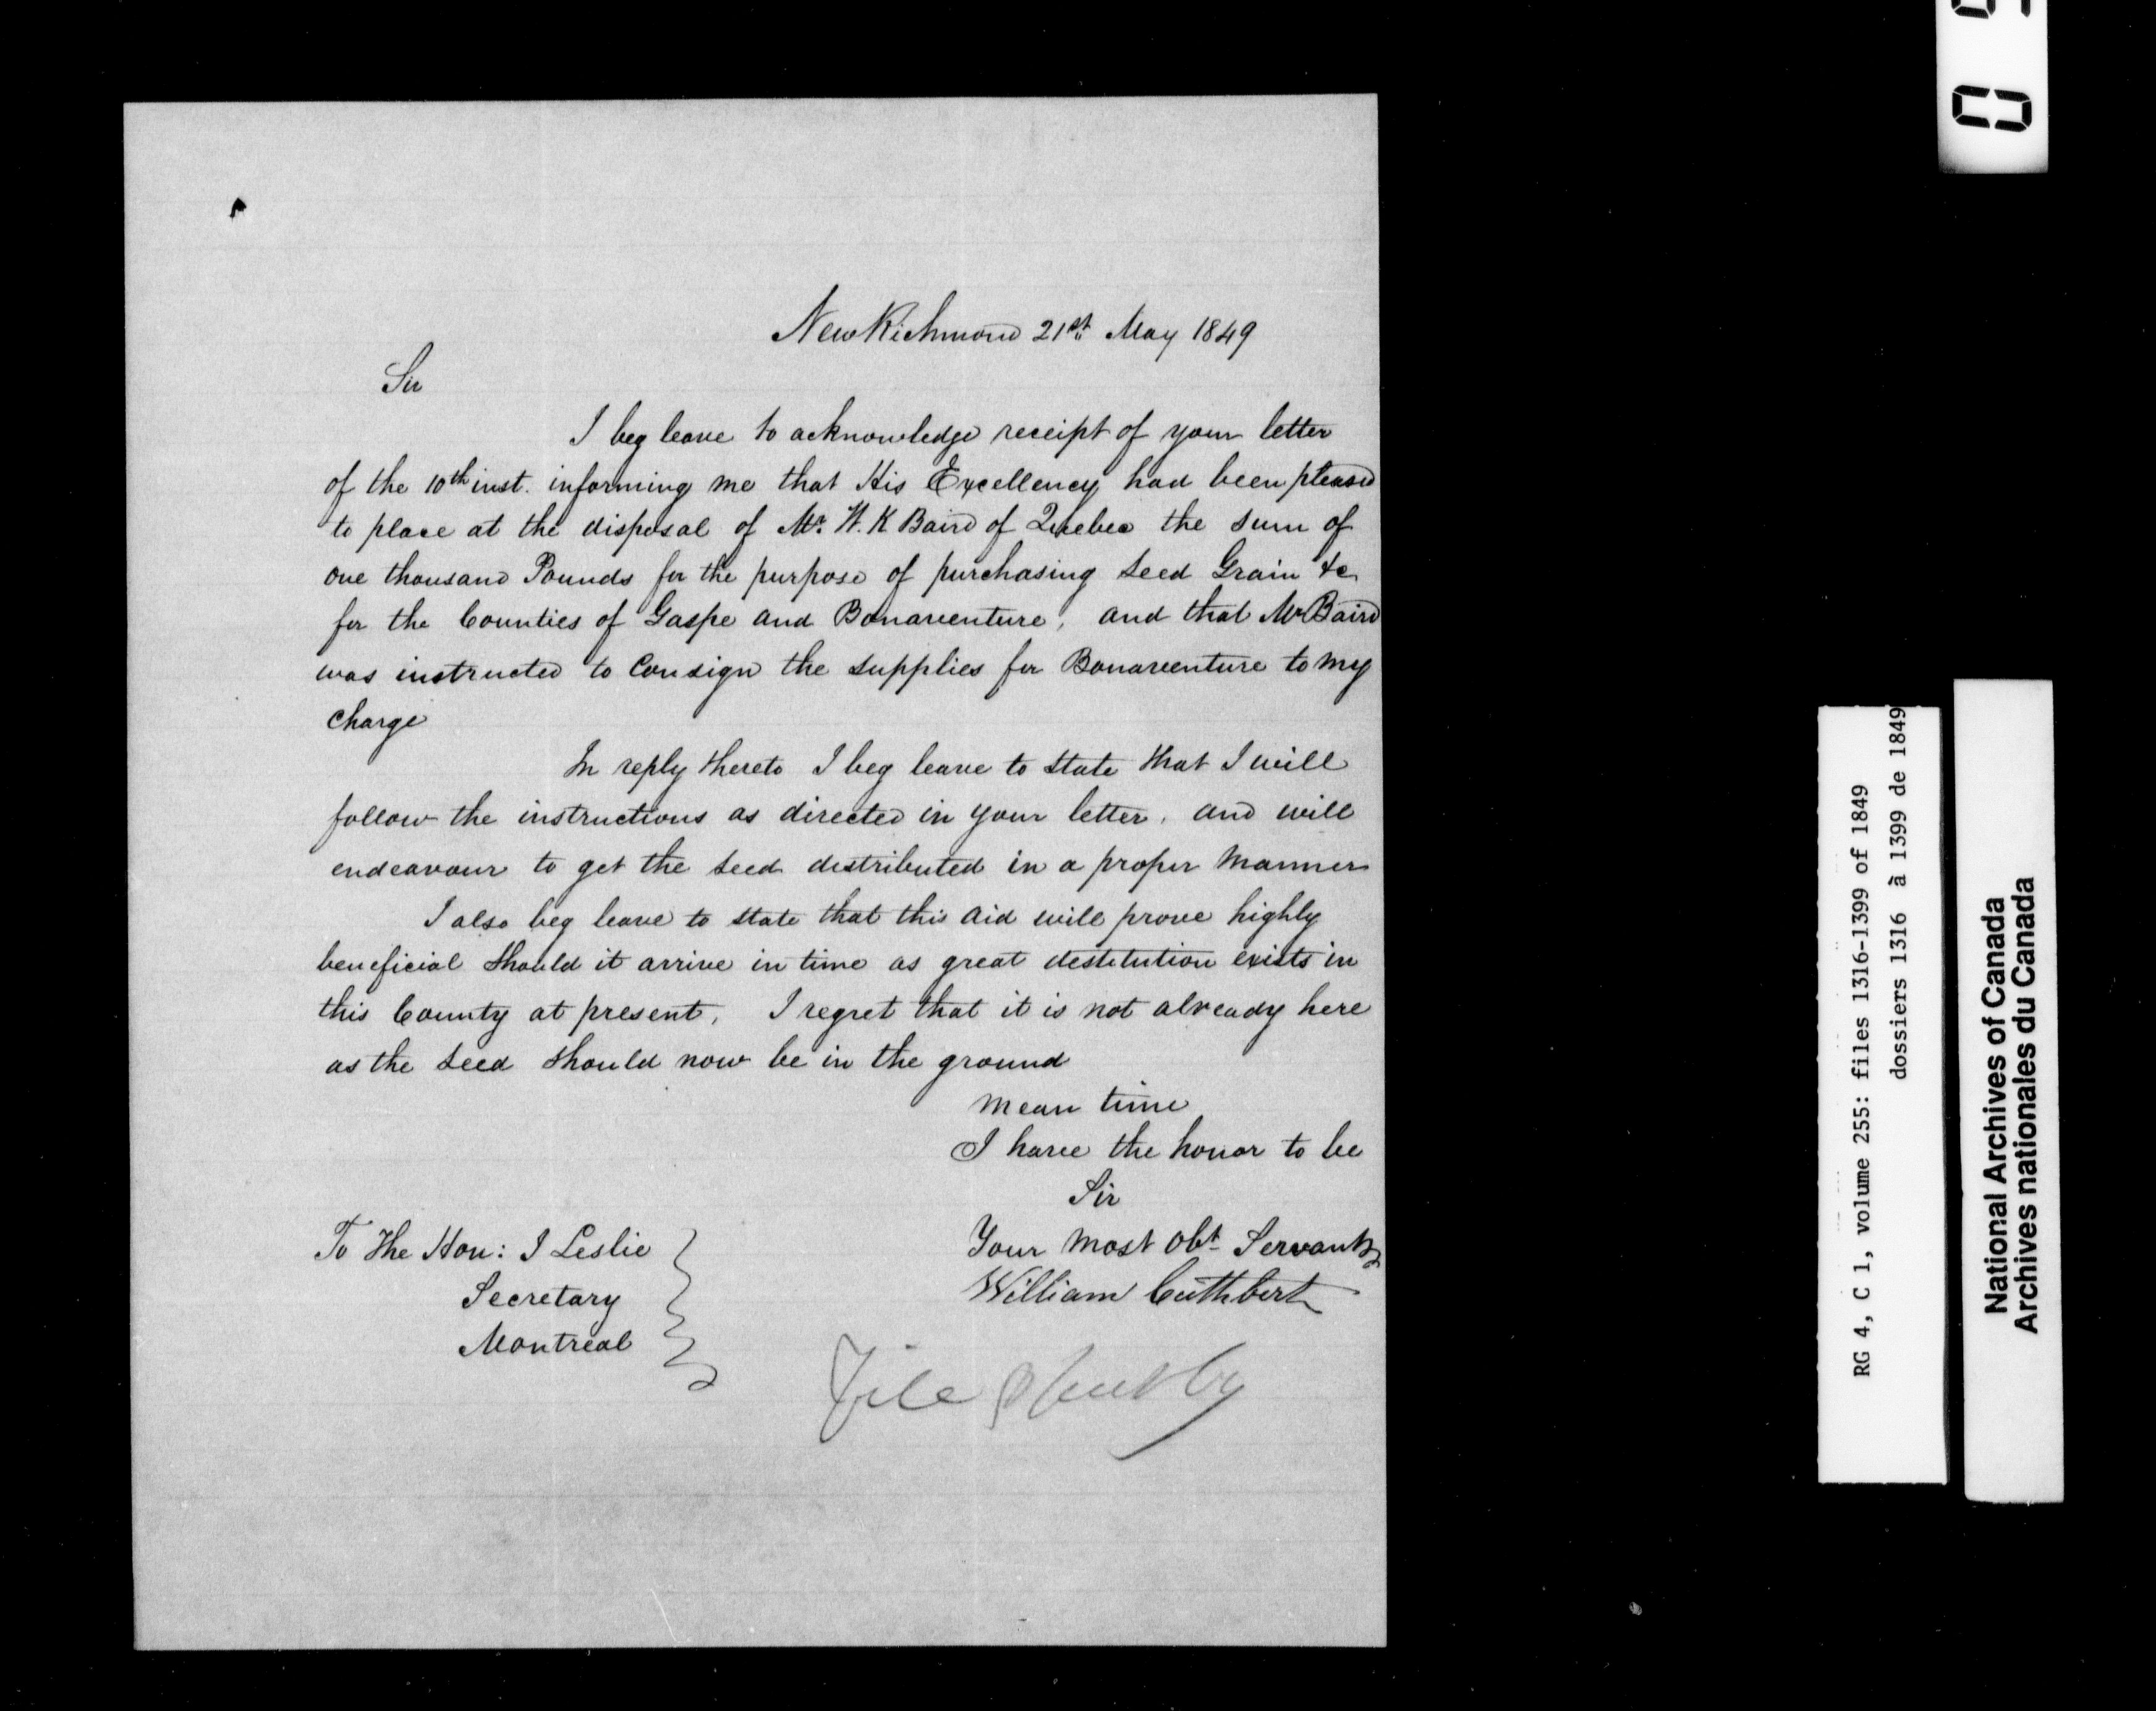 New Richmond 21st May 1849
Sir
I beg leave to acknowledge receipt of your letter
of the 10th inst. informing me that His Excellency had been pleased
to place at the disposal of Mr. W. K Baird of Quebec the sum of
one thousand Pounds for the purpose of purchasing Seed Grain &c
for the Counties of Gaspe and Bonaventure, and that Mr Baird
was instructed to Consign the supplies for Bonaventure to my
charge
In reply thereto I beg leave to state that I will
follow the instructions as directed in your letter, and will
endeavour to get the seed distributed in a proper manner
I also beg leave to state that this aid will prove highly
beneficial should it arrive in time as great destitution exists in
this County at present, I regret that it is not already here
as the seed should now be in the ground
mean time
I have the honor to be
Sir
Your most obt Servant
William Cuthbert
To The Hon: J Leslie
Secretary
Montreal
File
RG 4, C 1, volume 255: files 1316-1399 of 1849
dossiers 1316 à 1399 de 1849
National Archives of Canada
Archives nationales du Canada